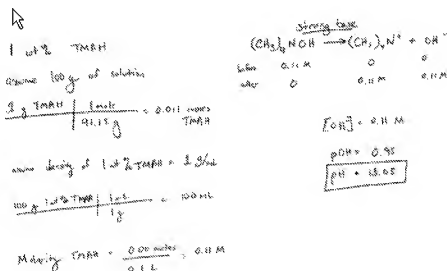 1 wt % TMAH
assume 100 g of solution
1 g TMAH | 1 mole = 0.011 moles TMAH
91.15 g
assume density of 1 wt % TMAH = 1 g/mL
100 g 1 wt % TMAH | 1 mL = 100 mL
1 g
Molarity TMAH = 0.011 moles = 0.11 M
0.1 L
strong base
(CH3)4NOH → (CH3)4N+ + OH-
before 0.11 M 0 0
after 0 0.11 M 0.11 M
[OH-] = 0.11 M
pOH = 0.95
pH = 13.05